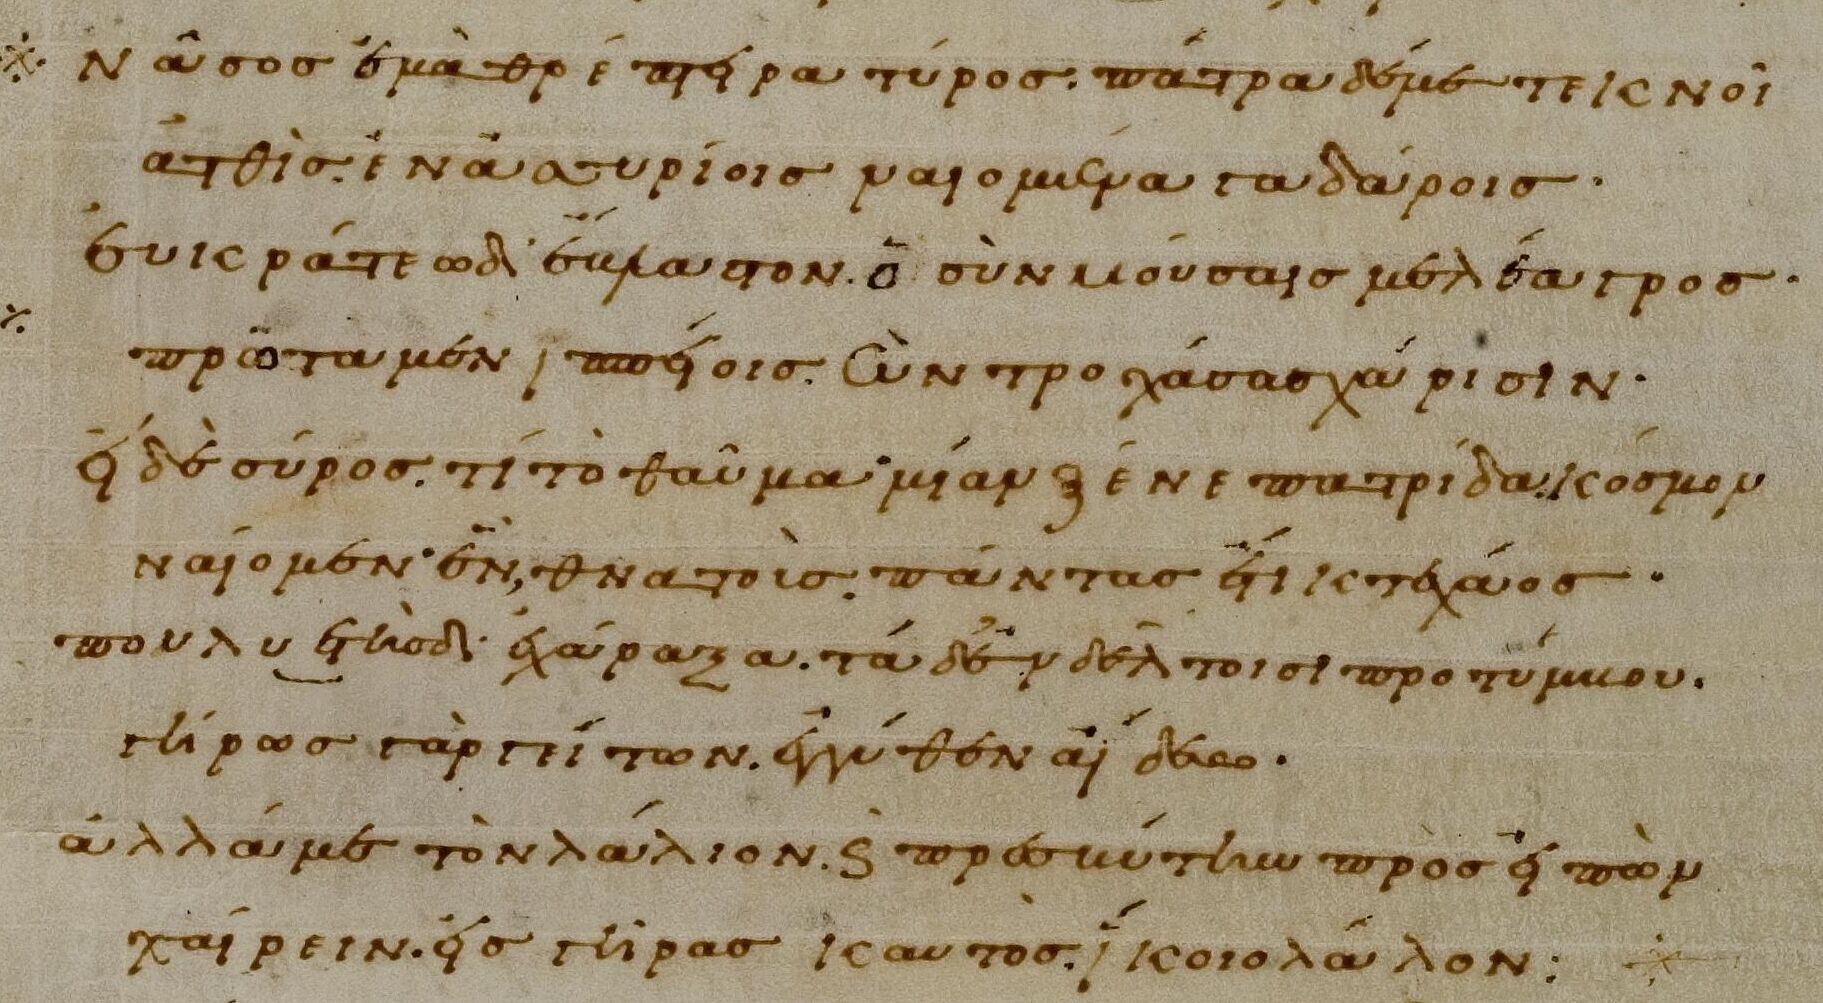 νᾶσος ἐμὰ θρέπτειρα τύρος· πάτρα δέ με τεκνοῖ
ἀτθὶς ἐν ἀσσυρίοις ναιομένα γαδάροις·
εὐκράτεω δ' ἔβλαστον ὁ σὺν μούσαις μελέαγρος·
πρῶτα μενιππείοις συντροχάσας χάρισιν·
εἰ δὲ σύρος. τί τὸ θαῦμα· μίαν ξένε πατρίδα κόσμον
ναίομεν· ἓν θνατοὺς πάντας ἔτικτε χάος·
πουλυετὴς δ' ἐχάραξα. τάδ' ἐν δέλτοισι πρὸ τύμβου.
γήρως γὰρ γείτων. ἐγγύθεν ἀίδεω·
ἀλλά με τὸν λάλιον. καὶ πρεσβύτην προσειπὼν
χαίρειν. εἰς γῆρας καυτὸς ἵκοιο λάλον: